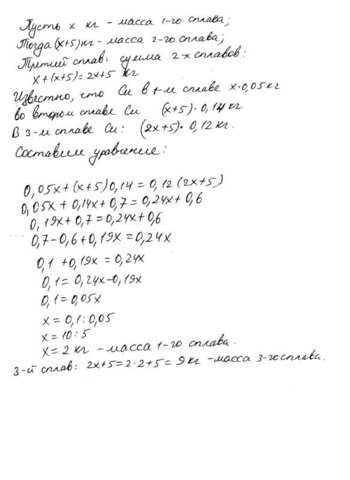 Пусть x кг - масса 1-го сплава;
Тогда (x+5)кг - масса 2-го сплава;
Третий сплав: сумма 2-х сплавов:
x+(x+5)=2x+5 кг
Известно, что Cu в 1-м сплаве x·0,05кг
во втором сплаве Cu (x+5)·0,14кг
В 3-м сплаве Cu: (2x+5)·0,12кг.
Составим уравнение:
0,05x+(x+5)0,14=0,12(2x+5)
0,05x+0,14x+0,7=0,24x+0,6
0,19x+0,7=0,24x+0,6
0,7-0,6+0,19x=0,24x
0,1+0,19x=0,24x
0,1=0,24x-0,19x
0,1=0,05x
x=0,1:0,05
x=10:5
x=2кг - масса 1-го сплава.
3-й сплав: 2x+5=2·2+5=9кг - масса 3-го сплава.